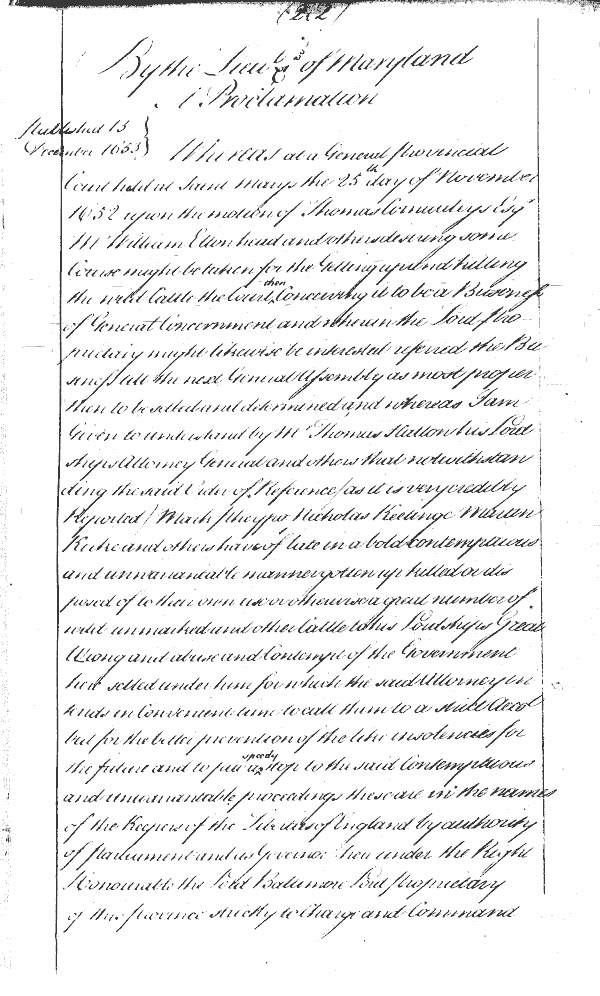 (22)
By the Lieut &c of Maryland
A Proclamation
Published 13
December 1653
Whereas at a General Provincial
Court held at Saint Marys the 25th day of November
1652 upon the motion of Thomas Cornwleys Esqr
Mr William Eltonhead and others desiring some
Course might be taken for the Getting up and killing
the wild Cattle the Court then Conceiving it to be a Business
of General Concernment and wherein the Lord Pro
prietary might likewise be interested referred the Bu
siness till the next General Assembly as most proper
then to be setled and determined and whereas I am
Given to understand by Mr Thomas Hatton his Lord
ships Attorney General and others that notwithstan
ding the said Order of Reference (as it is very credibly
Reported) Mark Pheypo Nicholas Keetinge Marten
Kirke and others have of late in a bold contemptuous
and unwarrantable manner gotten up killed or dis
posed of to their own use or otherwise a great number of
wild unmarked and other Cattle to his Lordships Great
Wrong and abuse and Contempt of the Government
here setled under him for which the said Attorney in
tends in Convenient time to call them to a strict Accot
but for the better prevention of the like insolencies for
the future and to put a speedy stop to the said Contemptuous
and unwarrantable proceedings these are in the names
of the Keepers of the Liberties of England by authority
of Parliament and as Governor here under the Right
Honourable the Lord Baltimore Lord Proprietary
of this Province strictly to Charge and Command